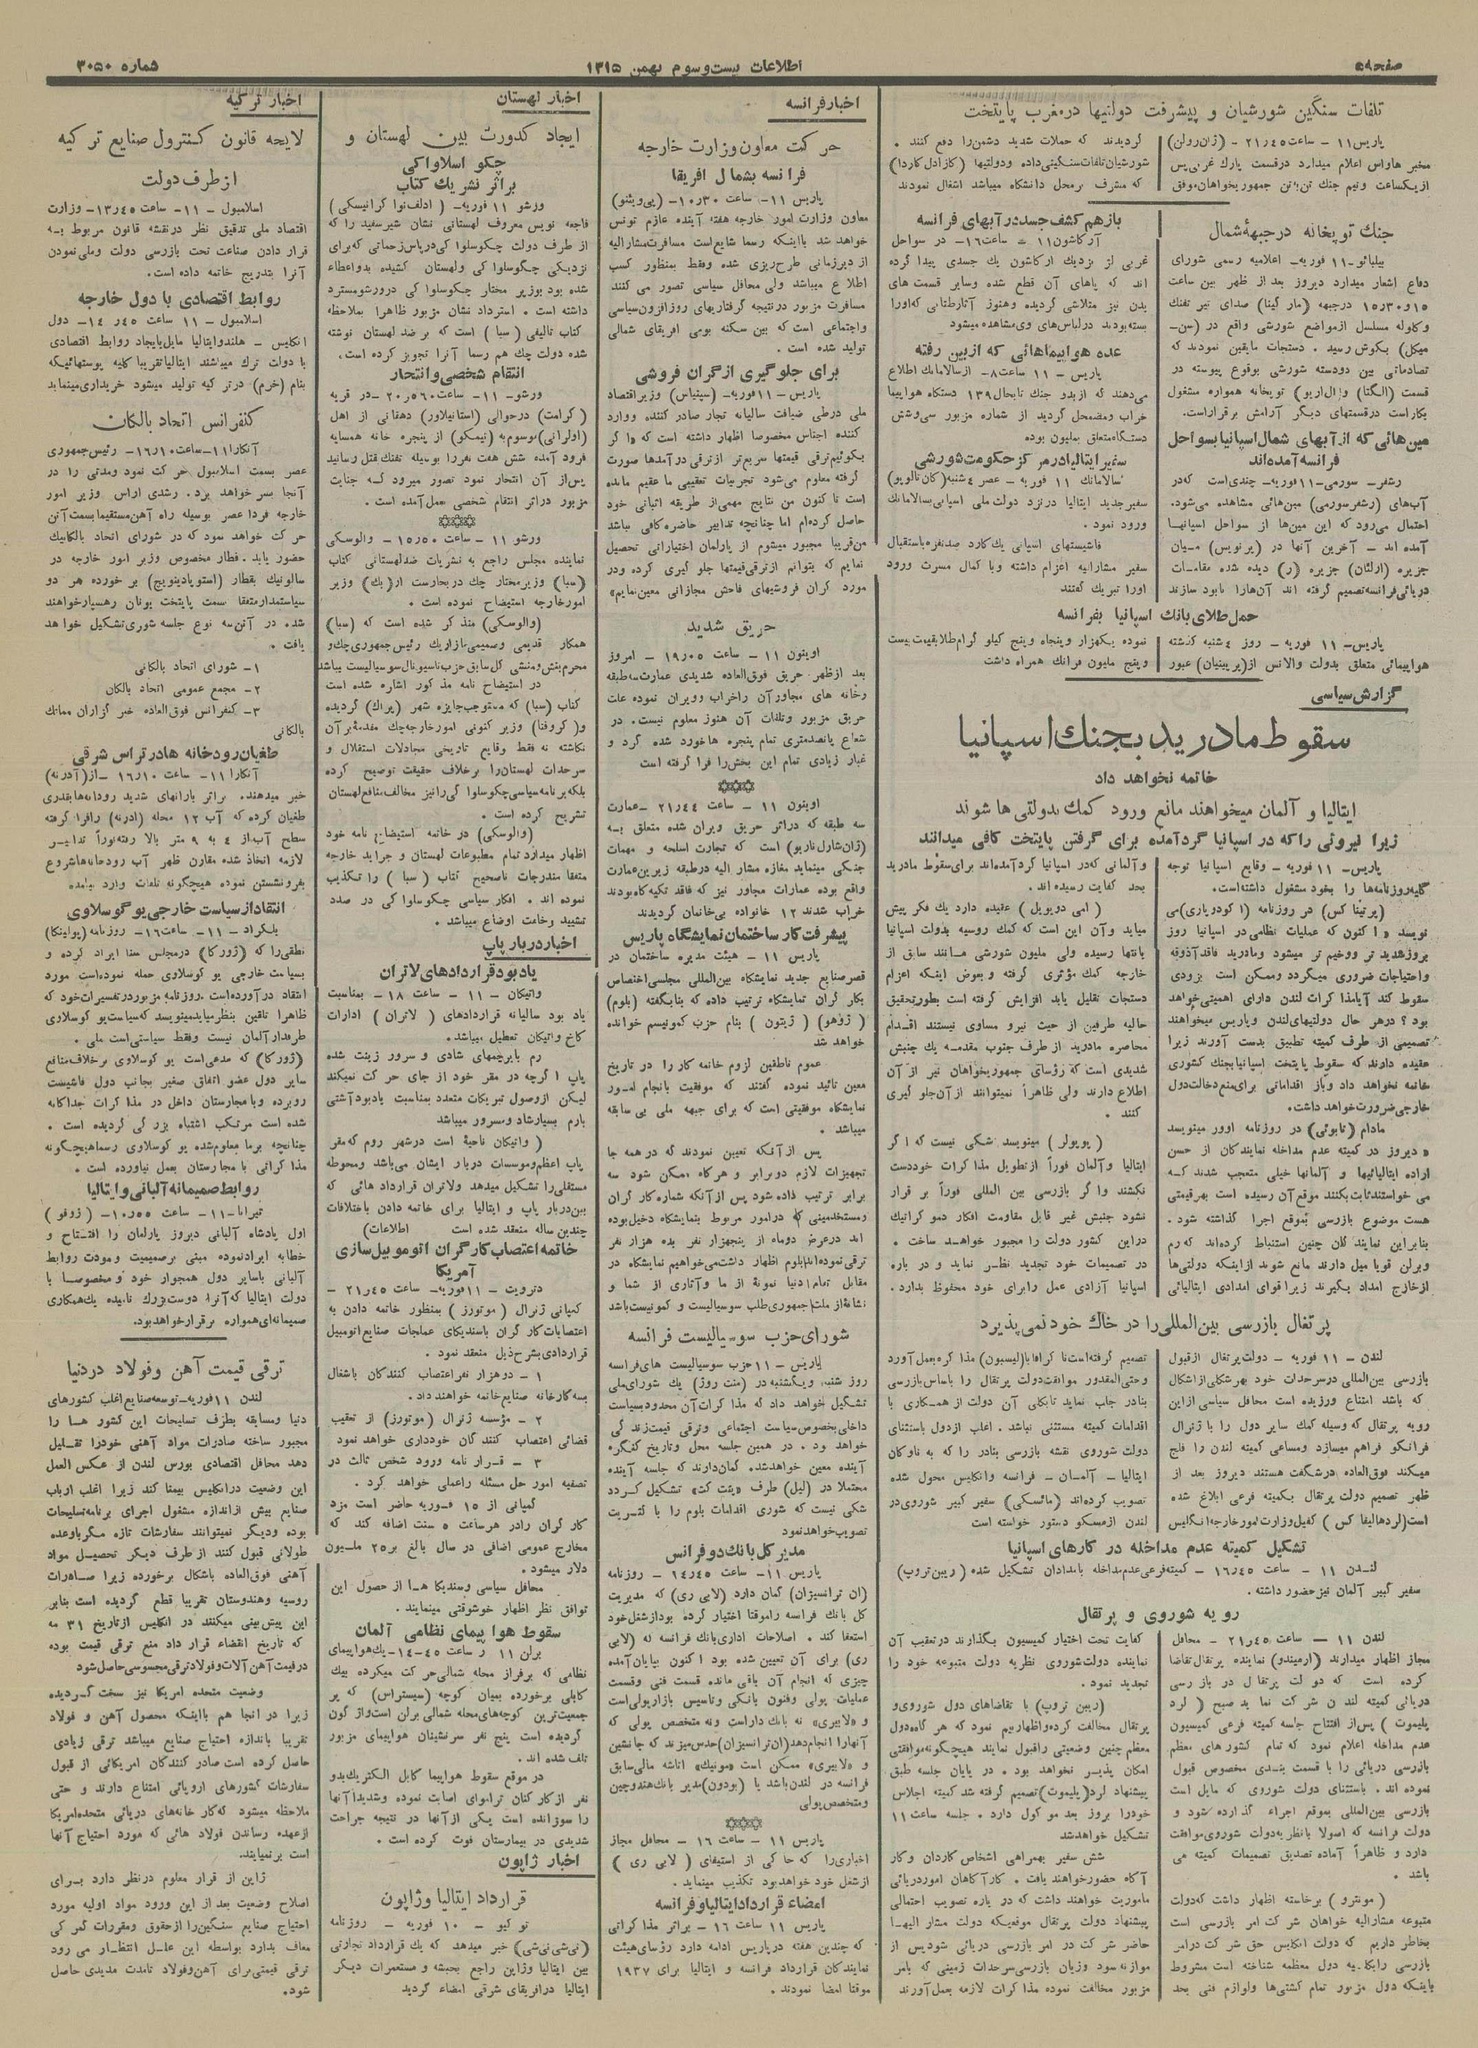 صفحه۵
اطلاعات بیست‌وسوم بهمن ۱۳۱۵
شماره ۳۰۵۰
تلفات سنگین شورشیان و پیشرفت دولتیها درمغرب پایتخت
پاریس۱۱ - ساعت۲۱ر۴۵ - (ژان‌رولن)
مخبر هاواس اعلام میدارد درقسمت پارك غربی پس
ازیکساعت ونیم جنك تن‌بتن جمهوریخواهان‌موفق
گردیدند که حملات شدید دشمن‌را دفع کنند .
شورشیان‌تلفات‌سنگینی‌داده ودولتیها (کازادل‌کاردا)
که مشرف برمحل دانشگاه میباشد اشغال نمودند
جنك توپخانه درجبههٔ‌شمال
بیلبائو-۱۱ فوریه- اعلامیه رسمی شورای
دفاع اشعار میدارد دیروز بعد از ظهر بین ساعت
۱۵و۱۵ر۳۰ درجبهه (مارکینا) صدای تیر تفنك
وگلوله مسلسل ازمواضع شورشی واقع در (سن-
میکل) بگوش رسید . دستجات مابقین نمودند که
تصادماتی بین دودسته شورشی بوقوع پیوسته در
قسمت (الگتا) و(ال‌اریو) توپخانه همواره مشغول
بکاراست درقسمتهای دیگر آرامش برقراراست.
مین‌هائی که ازآبهای شمال‌اسپانیا بسواحل
فرانسه‌آمده‌اند
رشفر- سورمی-۱۱فوریه- چندی‌است که‌در
آب‌های (رشفرسورمی) مین‌هائی مشاهده می‌شود.
احتمال میرود که این مین‌ها از سواحل اسپانیا
آمده اند - آخرین آنها در (پرتویس) میان
جزیره (ارلئان) جزیره (ر) دیده شده مقامات
دریائی‌فرانسه‌تصمیم گرفته اند آن‌هارا نابود سازند
بازهم کشف جسددرآبهای فرانسه
آرکاشون۱۱ - ساعت۱۶- در سواحل
غربی از نزدیك ارکاشون یك جسدی پیدا گرده
اند که پاهای آن قطع شده وسایر قسمت های
بدن نیز متلاشی گردیده وهنوز آثارطنابی که‌اورا
بسته‌بودند درلباس‌های وی‌مشاهده میشود
عده هواپیماهائی که ازبین رفته
پاریس - ۱۱ ساعت۸- ازسالامانك اطلاع
می‌دهند که ازبدو جنك تابحال۱۳۹ دستگاه هواپیما
خراب ومضمحل گردید از شماره مزبور سی‌وشش
دستگاه‌متعلق بملیون بوده
سفیرایتالیادرمرکزحکومت‌شورشی
سالامانك ۱۱ فوریه - عصر ۴شنبه(کان‌تالوپو)
سفیرجدید ایتالیا درنزد دولت ملی اسپانی‌بسالامانك
ورود نمود .
فاشیستهای اسپانی یك‌گارد صدنفره باستقبال
سفیر مشارالیه اعزام داشته وبا کمال مسرت ورود
اورا تبریك گفتند
حمل‌طلای بانك اسپانیا بفرانسه
پاریس- ۱۱ فوریه - روز ۴شنبه گذشته
هواپیمائی متعلق بدولت والانس از(پرپینیان) عبور
نموده یکهزار وپنجاه وپنج کیلو گرام‌طلابقیمت‌بیست
وپنج ملیون فرانك همراه داشت
گزارش‌سیاسی
سقوط‌مادرید بجنك‌اسپانیا
خاتمه نخواهد داد
ایتالیا و آلمان میخواهند مانع ورود کمك بدولتی‌ها شوند
زیرا نیروئی راکه در اسپانیا گردآمده برای گرفتن پایتخت کافی میدانند
پاریس- ۱۱ فوریه - وقایع اسپانیا توجه
کلیه‌روزنامه‌ها را بخود مشغول داشته‌است.
(پرتیناکس) در روزنامه (اکودوپاری)می
نویسد «اکنون که عملیات نظامی‌در اسپانیا روز
بروزشدید تر ووخیم تر میشود ومادرید فاقدآذوقه
واحتیاجات ضروری میگردد وممکن است بزودی
سقوط کند آیامذاکرات لندن دارای اهمیتی‌خواهد
بود ؟ درهر حال دولتهای‌لندن وپاریس میخواهند
تصمیمی از طرف کمیته تطبیق بدست آورند زیرا
عقیده دارند که سقوط پایتخت اسپانیابجنك کشوری
خاتمه نخواهد داد وباز اقداماتی برای‌منع‌دخالت‌دول
خارجی‌ضرورت‌خواهد داشت.
مادام (تابوئی) در روزنامه اوور مینویسد
« دیروز در کمیته عدم مداخله نمایندکان از حسن
اراده ایتالیائیها و آلمانها خیلی متعجب شدند که
می خواستندثابت‌بکنند موقع‌آن رسیده است بهرقیمتی
هست موضوع بازرسی بموقع اجرا گذاشته شود.
بنابراین نمایند گان چنین استنباط کرده‌اند که‌رم
وبرلن قویا میل دارند مانع شوند ازاینکه دولتی‌ها
ازخارج امداد بگیرند زیرا قوای امدادی ایتالیائی
وآلمانی که‌در اسپانیا گردآمده‌اند برای‌سقوط مادرید
بحد کفایت رسیده اند .
( امی دوپوپل ) عقیده دارد یك فکر پیش
میاید وآن این است که کمك روسیه بدولت اسپانیا
بانتها رسیده ولی ملیون شورشی مانند سابق از
خارجه کمك مؤثری گرفته وبعوض اینکه اعزام
دستجات تقلیل یابد افزایش گرفته است بطورتحقیق
حالیه طرفین از حیث نیرو مساوی نیستند اقدام
محاصره مادرید از طرف جنوب مقدمه یك جنبش
شدیدی است که رؤسای جمهوریخواهان نیز از آن
اطلاع دارند ولی ظاهراً نمیتوانند ازآن‌جلو گیری
کنند .
( پوپولر ) مینویسد شکی نیست که اگر
ایتالیا وآلمان فوراً ازتطویل مذاکرات خوددست
نکشند واگر بازرسی بین المللی فوراً بر قرار
نشود جنبش غیر قابل مقاومت افکار دموکراتیك
دراین کشور دولت را مجبور خواهد ساخت .
در تصمیمات خود تجدید نظر نماید و در باره
اسپانیا آزادی عمل رابرای خود محفوظ بدارد.
پرتغال بازرسی بین‌المللی‌را درخاك خودنمی‌پذیرد
لندن - ۱۱ فوریه - دولت‌پرتغال ازقبول
بازرسی بین‌المللی درسرحدات خود بهرشکلی‌ازاشکال
که باشد امتناع ورزیده است محافل سیاسی ازاین
رویه پرتقال که وسیله کمك سایر دول را با ژنرال
فرانکو فراهم میسازد ومساعی کمیته لندن را فلج
میکند فوق‌العاده درشگفت هستند دیروز بعد از
ظهر تصمیم دولت پرتقال بکمیته فرعی ابلاغ شده
است(لردهالیفاکس ) کفیل‌وزارت‌امورخارجه‌انگلیس
تصمیم گرفته‌است‌تا گراقابا(لیسبون) مذاکره‌بعمل‌آورد
وحتی‌المقدور موافقت‌دولت پرتقال را باساس‌بازرسی
بنادر جاب نماید تابکلی آن دولت از همکاری با
اقدامات کمیته مستثنی نباشد . اغلب ازدول باستثنای
دولت شوروی نقشه بازرسی بنادر را که به ناوگان
ایتالیا - آلمان - فرانسه وانگلیس محول شده
تصویب کرده‌اند (مائسکی) سفیر کبیر شوروی‌در
لندن ازمسکو دستور خواسته است
تشکیل کمیته عدم مداخله در کارهای اسپانیا
لندن ۱۱ - ساعت ۱۶ر۴۵ - کمیته‌فرعی‌عدم‌مداخله بامدادان تشکیل شده (ریبن‌تروپ)
سفیر کبیر آلمان نیزحضور داشته .
رویه شوروی و پرتقال
لندن ۱۱ - ساعت ۲۱ر۴۵ - محافل
مجاز اظهار میدارند (ارمیندو) نماینده پرتقال‌تقاضا
کرده است که دولت پرتقال در بازرسی
دریائی کمیته لندن شرکت نماید صبح ( لرد
پلیموت ) پس‌از افتتاح جلسه کمیته فرعی کمیسیون
عدم مداخله اعلام نمود که تمام کشورهای معظم
بازرسی دریائی را با قسمت بندی مخصوص قبول
نموده اند . باستثنای دولت شوروی که مایل است
بازرسی بین‌المللی بموقع اجراء گذارده شود و
دولت فرانسه که اصولا بانظربه‌دولت شوروی‌موافقت
دارد و ظاهراً آماده تصدیق تصمیمات کمیته می
باشد .
( مونترو ) برخاسته اظهار داشت که‌دولت
متبوعه مشارالیه خواهان شرکت امر بازرسی است
بخاطر داریم که دولت انگلیس حق شرکت درامر
بازرسی رابکلیه دول معظمه شناخته است مشروط
باینکه دول مزبور تمام کشتی‌ها ولوازم فنی بحد
کفایت تحت اختیار کمیسیون بگذارند درتعقیب آن
نماینده دولت‌شوروی نظریه دولت متبوعه خود را
تجدید نمود .
(ریبن تروپ) با تقاضاهای دول شوروی‌و
پرتقال مخالفت کرده‌واظهاربیم نمود که هرگاه‌دول
معظم چنین وضعیتی راقبول نمایند هیچگونه‌موافقتی
امکان پذیر نخواهد بود . در پایان جلسه طبق
پیشنهاد لرد(پلیموت)تصمیم گرفته شد کمیته اجلاس
خودرا بروز بعد موکول دارد . جلسه ساعت۱۱
تشکیل خواهدشد
شش سفیر بهمراهی اشخاص کاردان وکار
آگاه حضورخواهند یافت . کارآکاهان اموردریائی
ماموریت خواهند داشت که در باره تصویب احتمالی
پیشنهاد دولت پرتقال موقعیکه دولت مشار الیها
حاضر شرکت در امر بازرسی دریائی شودپس از
موازنه سود وزیان بازرسی‌سرحدات زمینی که بامر
مزبور مخالفت نموده مذاکرات لازمه بعمل‌آورند
اخبارفرانسه
حرکت معاون‌وزارت خارجه
فرانسه بشمال افریقا
پاریس ۱۱- ساعت ۱۰ر۳۰- (پی‌ویئنو)
معاون وزارت امور خارجه هفته آینده عازم تونس
خواهد شد بااینکه رسما شایع‌است مسافرت‌مشارالیه
از دیرزمانی طرح‌ریزی شده وفقط بمنظور کسب
اطلاع میباشد ولی محافل سیاسی تصور می کنند
مسافرت مزبور درنتیجه گرفتاریهای روزافزون‌سیاسی
واجتماعی است که بین سکنه بومی افریقای شمالی
تولید شده است .
برای جلوگیری ازگران فروشی
پاریس - ۱۱فوریه- (سپیناس) وزیراقتصاد
ملی درطی ضیافت سالیانه تجار صادر کننده ووارد
کننده اجناس مخصوصا اظهار داشته است که «اگر
بگوئیم‌ترقی قیمتها سریع‌تر ازترقی درآمدها صورت
گرفته معلوم می‌شود تجربیات تعقیبی ما عقیم مانده
است تا کنون من نتایج مهمی‌از طریقه اثباتی خود
حاصل کرده‌ام اما چنانچه تدابیر حاضره‌کافی نباشد
من‌قریبا مجبور میشوم از پارلمان اختیاراتی تحصیل
نمایم که بتوانم ازترقی‌قیمتها جلو گیری کرده ودر
مورد گران فروشیهای فاحش مجازاتی معین‌نمایم»
حریق شدید
اوینون ۱۱ - ساعت ۱۹ر۰۵ - امروز
بعد ازظهر حریق فوق‌العاده شدیدی عمارت‌سه‌طبقه
رخانه های مجاورآن راخراب وویران نموده علت
حریق مزبور وتلفات آن هنوز معلوم نیست. در
شعاع پانصدمتری تمام پنجره هاخورد شده گرد و
غبار زیادی تمام این بخش‌را فرا گرفته است
اوینون ۱۱ - ساعت ۲۱ر۴۴ -عمارت
سه طبقه که دراثر حریق ویران شده متعلق به
(ژان‌شارل‌ناریو) است که تجارت اسلحه و مهمات
جنگی مینماید مغازه مشار الیه درطبقه زیرین‌عمارت
واقع بوده عمارات مجاور نیز که فاقد تکیه‌گاه‌بودند
خراب شدند ۱۲ خانواده بی‌خانمان گردیدند
پیشرفت‌کار ساختمان‌نمایشگاه‌پاریس
پاریس ۱۱ - هیئت مدیره ساختمان در
قصرصنایع جدید نمایشگاه بین‌المللی مجلسی‌اختصاص
بکار گران نمایشگاه ترتیب داده که بنابگفته (بلوم)
( ژوهو ) ( ژیتون ) بنام حزب کمونیسم خوانده
خواهد شد
عموم ناطقین لزوم خاتمه کار را در تاریخ
معین تائید نموده گفتند که موفقیت بانجام امور
نمایشگاه موفقیتی است که برای جبهه ملی بی‌سابقه
میباشد .
پس ازآنکه تعیین نمودند که درهمه جا
تجهیزات لازم دوبرابر و هرگاه ممکن شود سه
برابر ترتیب داده شود پس ازآنکه شماره‌کار گران
ومستخدمینی که درامور مربوط بنمایشگاه دخیل‌بوده
اند درعرض دوماه از پنجهزار نفر بده هزار نفر
ترقی‌نموده‌اند‌بلوم اظهار داشت‌می‌خواهیم نمایشگاه در
مقابل تمام‌دنیا نمونهٔ از ما وآثاری از شما و
نشانهٔ‌از ملت‌جمهوری‌طلب سوسیالیست و کمونیست‌باشد
شورای‌حزب سوسیالیست فرانسه
پاریس - ۱۱حزب سوسیالیست های‌فرانسه
روز شنبه ویکشنبه‌در (منت روژ) یك شورای‌ملی
تشکیل خواهد داد که مذاکرات‌آن محدودبسیاست
داخلی‌بخصوص‌سیاست اجتماعی وترقی قیمت‌زندگی
خواهد بود . در همین جلسه محل وتاریخ کنگره
آینده معین خواهدشد. گمان‌دارند که جلسه آینده
محتملا در (لیل) طرف «پنت کت» تشکیل گردد
شکی نیست که شوری اقدامات بلوم را با کثریت
تصویب‌خواهدنمود
مدیرکل‌بانك‌دوفرانس
پاریس ۱۱- ساعت ۱۴ر۴۵ - روزنامه
(ان ترانسیژان) گمان دارد (لابی ری) که مدیریت
کل بانك فرانسه راموقتا اختیار گرده بودازشغل‌خود
استعفا کند . اصلاحات اداری‌بانك فرانسه که (لابی
ری) برای آن تعیین شده بود اکنون بپایان‌آمده
چیزی که انجام آن باقی مانده قسمت فنی وقسمت
عملیات پولی وفنون بانکی وتاسیس بازارپولی‌است
و «لابیری» نه بانك داراست ونه متخصص پولی که
آنهارا انجام‌دهد(ان‌ترانسیژان)حدس‌میزند که جانشین
و «لابیری» ممکن است «مونیك» اتاشه مالی‌سابق
فرانسه در لندن باشد یا (بودون)مدیر بانك‌هندوچین
ومتخصص‌پولی
پاریس ۱۱ - ساعت ۱۶ - محافل مجاز
اخباری‌را که حاکی از استیفای ( لابی ری )
ازشغل خود خواهدبود تکذیب مینماید .
امضاء قرارداد‌ایتالیاوفرانسه
پاریس ۱۱ ساعت ۱۶ - براثر مذاکراتی
که چندین هفته درپاریس ادامه دارد رؤسای‌هیئت
نمایندکان قرارداد فرانسه و ایتالیا برای ۱۹۳۷
موقتا امضا نمودند .
اخبار لهستان
ایجاد کدورت بین لهستان و
چکو اسلاواکی
براثر نشر یك کتاب
ورشو ۱۱ فوریه- (ادلف‌نوا کرانیسکی)
فاجعه نویس معروف لهستانی نشان شیرسفید را که
از طرف دولت چکوسلوا کی‌درپاس‌زحماتی که‌برای
نزدیکی چکوسلوا کی ولهستان کشیده بدواعطاء
شده بود بوزیر مختار چکوسلوا کی درورشومسترد
داشته است . استرداد نشان مزبور ظاهرا بملاحظه
کتاب تالیفی (سبا) است که بر ضد لهستان نوشته
شده دولت چك هم رسما آنرا تجویز کرده است .
انتقام شخصی‌وانتحار
ورشو- ۱۱- ساعت۲۰ر۵۶۰- در قریه
(کرامت) درحوالی (استانیلاور) دهقانی از اهل
(اولرانی)موسوم‌به (نیمکو) از پنجره خانه همسایه
فرود آمده شش هفت نفررا بوسیله تفنك قتل رسانید
پس‌از آن انتحار نمود تصور میرود که جنایت
مزبور دراثر انتقام شخصی بعمل‌آمده است .
ورشو ۱۱ - ساعت ۱۵ر۵۰ - والوسکی
نماینده مجلس راجع به نشریات ضدلهستانی کتاب
(سبا) وزیرمختار چك دربخارست از(بك) وزیر
امورخارجه استیضاح نموده است .
(والوسکی) متذکر شده است که (سبا)
همکار قدیمی وصمیمی‌مازاریك رئیس‌جمهوری‌چك‌و
محرم‌بنش‌ومنشی کل‌سابق‌حزب‌ناسیونال‌سوسیالیست میباشد
در استیضاح نامه مذکور اشاره شده است
کتاب (سبا) که مستوجب‌جایزه شهر (پراك) گردیده
و( کروفتا) وزیر کنونی امورخارجه‌چك مقدمه‌برآن
نگاشته نه فقط وقایع تاریخی مجادلات استقلال و
سرحدات لهستان‌را برخلاف حقیقت توصیح کرده
بلکه‌برنامه‌سیاسی‌چکوسلوا کی‌رانیز مخالف‌منافع‌لهستان
تشریح کرده است .
(والوسکی) در خاتمه استیضاح نامه خود
اظهار میدارد تمام مطبوعات لهستان و جراید خارجه
متفقا مندرجات ناصحیح کتاب ( سبا ) را تکذیب
نموده اند . افکار سیاسی چکوسلوا کی در صدد
تشیید وخامت اوضاع میباشد .
اخباردربار پاپ
یادبودقراردادهای‌لاتران
واتیکان - ۱۱ - ساعت ۱۸ - بمناسبت
یاد بود سالیانه قراردادهای ( لاتران ) ادارات
کاخ واتیکان تعطیل میباشد.
رم باپرچمهای شادی و سرور زینت شده
پاپ ۱ گرچه در مقر خود از جای حرکت نمیکند
لیکن ازوصول تبریکات متعدد بمناسبت یادبودآشتی
بارم بسیارشاد ومسرور میباشد
( واتیکان ناحیهٔ است درشهر روم که‌مقر
پاپ اعظم‌وموسسات دربار ایشان می‌باشد ومحوطه
مستقلی‌را تشکیل میدهد ولاتران قرارداد هائی که
بین‌دربار پاپ و ایتالیا برای خاتمه دادن باختلافات
چندین ساله منعقد شده است اطلاعات)
خاتمه اعتصاب‌کارگران اتوموبیل‌سازی
آمریکا
دترویت - ۱۱فوریه- ساعت ۲۱ر۴۵ -
کمپانی ژنرال ( موتورز ) بمنظور خاتمه دادن به
اعتصابات کار گران باسندیکای عملجات صنایع‌اتومبیل
قراردادی بشرح‌ذیل منعقد نمود .
۱ - دوهزار نفراعتصاب کنندکان باشغال
سه‌کارخانه صنایع‌خاتمه خواهند داد.
۲ - مؤسسه ژنرال (موتورز) از تعقیب
قضائی اعتصاب کنندگان خودداری خواهد نمود
۳ - قرارنامه ورود شخص ثالث در
تصفیه امور حل مسئله راعملی خواهد کرد .
کمپانی از ۱۵ فوریه حاضر است مزد
کار گران رادر هرساعت ۵ سنت اضافه کند که
مخارج عمومی اضافی در سال بالغ بر۲۵ ملیون
دلار میشود .
محافل سیاسی وسندیکا ها از حصول این
توافق نظر اظهار خوشوقتی مینمایند .
سقوط هوا پیمای نظامی آلمان
برلن ۱۱ ر ساعت ۴۵-۱۴-یك‌هواپیمای
نظامی که برفراز محله شمالی‌حرکت میکرده بیك
کابلی برخورده بمیان کوچه (سیستراس) که پر
جمعیت‌ترین کوچه‌های‌محله شمالی برلن است‌واژگون
گردیده است پنج نفر سرنشینان هواپیمای مزبور
تلف شده اند .
در موقع سقوط هواپیما کابل الکتریك‌بدو
نفر ازکار کنان تراموای اصابت نموده وشدیداًآنها
را سوزانده است یکی ازآنها در نتیجه جراحت
شدیدی در بیمارستان فوت کرده است .
اخبار ژاپون
قرارداد ایتالیا وژاپون
توکیو - ۱۰ فوریه - روزنامه
(نی‌شی‌نی‌شی) خبر میدهد که یك قرارداد تجارتی
بین ایتالیا وژاپن راجع بحبشه و مستعمرات دیگر
ایتالیا درافریقای شرقی امضاء گردید
اخبار ترکیه
لایحه قانون کنترول صنایع ترکیه
ازطرف دولت
اسلامبول - ۱۱- ساعت ۱۳ر۴۵- وزارت
اقتصاد ملی تدقیق نظر درنقشه قانون مربوط به
قرار دادن صناعت تحت بازرسی دولت وملی‌نمودن
آنرا بتدریج خاتمه داده است.
روابط اقتصادی با دول خارجه
اسلامبول - ۱۱ ساعت ۴۵ر ۱۴- دول
انگلیس - هلندوایتالیا مایل‌بایجاد روابط اقتصادی
با دولت ترك میباشند ایتالیاتقریبا کلیه پوستهائیکه
بنام (خرم) درترکیه تولید میشود خریداری‌مینماید
کنفرانس اتحاد بالکان
آنکارا۱۱-ساعت۱۶ر۱۰- رئیس‌جمهوری
عصر بسمت اسلامبول حرکت نمود ومدتی را در
آنجا بسر خواهد برد. رشدی اراس وزیر امور
خارجه فردا عصر بوسیله راه آهن‌مستقیما‌بسمت‌آتن
حرکت خواهد نمود که‌در شورای اتحاد بالکانیك
حضور یابد. قطار مخصوص وزیر امور خارجه در
سالونیك بقطار (استویادینویچ) بر خورده هر دو
سیاستمدارمتفقا سمت پایتخت یونان رهسپارخواهند
شد. در آتن‌سه نوع جلسه شوری‌تشکیل خواهد
یافت .
۱- شورای اتحاد بالکانی
۲- مجمع عمومی اتحاد بالکان
۳- کنفرانس فوق‌العاده خبر گزاران ممالك
بالکانی
طغیان‌رودخانه هادرتراس شرقی
آنکارا ۱۱- ساعت ۱۶ر۱۰ -از(آدرنه)
خبر میدهند. براثر بارانهای شدید رودها بقدری
طغیان کرده که آب ۱۲ محله (ادرنه) رافرا گرفته
سطح آب‌از ۴ به ۹ متر بالا رفته‌فوراً تدابیر
لازمه اتخاذ شده مقارن ظهر آب رودخانه‌هاشروع
بفرونشستن نموده هیچگونه تلفات وارد نیامده
انتقادازسیاست خارجی‌یوگوسلاوی
بلگراد - ۱۱- ساعت۱۶- روزنامه (پولیتیکا)
نطقی‌را که (ژورکا) درمجلس سنا ایراد کرده و
بسیاست خارجی یو گوسلاوی حمله نموده‌است مورد
انتقاد درآورده‌است .روزنامه مزبوردرتفسیرات‌خودکه
ظاهرا تاقین بنظرمیایدمینویسد که‌سیاست‌یو گوسلاوی
طرفدارآلمان نیست وفقط سیاستی‌است ملی .
(ژورکا) که مدعی‌است یو گوسلاوی برخلاف‌منافع
سایر دول عضو اتفاق صغیر بجانب دول فاشیست
روبرده وبامجارستان داخل در مذاکرات جداگانه
شده است مرتکب اشتباه بزرگی گردیده است .
چنانچه برما معلوم‌شده یو گوسلاوی رسماهیچگونه
مذاکراتی با مجارستان بعمل نیاورده است .
روابط‌صمیمانه‌آلبانی‌وایتالیا
تیرانا-۱۱- ساعت ۱۰ر۵۵- ( زوغو )
اول پادشاه آلبانی دیروز پارلمان را افتتاح و
خطابه ایرادنموده مبنی برصمیمیت ومودت روابط
آلبانی باسایر دول همجوار خود ومخصوصا با
دولت ایتالیا که‌آنرا دوست‌بزرك نامیده یك‌همکاری
صمیمانه‌ای‌همواره برقرارخواهدبود.
ترقی قیمت آهن وفولاد دردنیا
لندن ۱۱فوریه-توسعه‌صنایع‌اغلب کشورهای
دنیا ومسابقه بطرف تسلیحات این کشور ها را
مجبور ساخته صادرات مواد آهنی خودرا تقلیل
دهد محافل اقتصادی بورس لندن از عکس العمل
این وضعیت درانگلیس بیمنا کند زیرا اغلب ارباب
صنایع بیش ازاندازه مشغول اجرای برنامه‌تسلیحات
بوده ودیگر نمیتوانند سفارشات تازه مگرباوعده
طولانی قبول کنند ازطرف دیگر تحصیل مواد
آهنی فوق‌العاده باشکال برخورده زیرا صادرات
روسیه وهندوستان تقریبا قطع گردیده است بنابر
این پیش‌بینی میکنند در انگلیس ازتاریخ ۳۱ مه
که تاریخ انقضاء قرار داد منع ترقی قیمت بوده
درقیمت آهن‌آلات‌وفولادترقی‌محسوسی‌حاصل‌شود
وضعیت متحده امریکا نیز سخت گردیده
زیرا در انجا هم بااینکه محصول آهن و فولاد
تقریبا باندازه احتیاج صنایع میباشد ترقی زیادی
حاصل کرده است صادر کنندگان امریکائی از قبول
سفارشات کشورهای اروپائی امتناع دارند و حتی
ملاحظه میشود که‌کار خانه‌های دریائی متحده‌امریکا
ازعهده رساندن فولاد هائی که مورد احتیاج آنها
است برنمیایند.
ژاپن از قرار معلوم درنظر دارد برای
اصلاح وضعیت بعد از این ورود مواد اولیه مورد
احتیاج صنایع سنگین‌را ازحقوق ومقررات گمرکی
معاف بدارد بواسطه این عامل انتظار می رود
ترقی قیمتی‌برای آهن‌وفولاد تامدت مدیدی حاصل
شود.